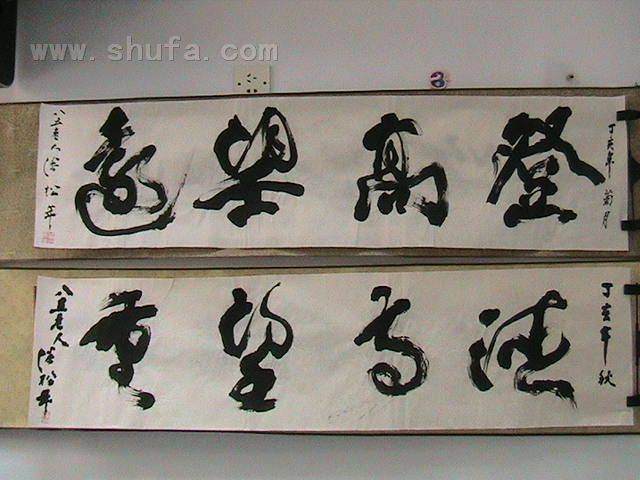 www.shufa.com
丁亥年菊月
登高望遠
八五老人 松年
丁亥年秋
德高望重
八五老人 松年